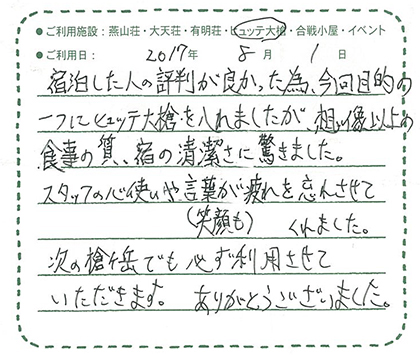 ●ご利用施設：燕山荘・大天荘・有明荘・ヒュッテ大槍・合戦小屋・イベント
●ご利用日： 2017年 8月 1日
宿泊した人の評判が良かった為、今回目的の
一つにヒュッテ大槍を入れましたが、想像以上の
食事の質、宿の清潔さに驚きました。
スタッフの心使いや言葉が疲れを忘れさせて
(笑顔も) くれました。
次の槍ヶ岳でも必ず利用させて
いただきます。 ありがとうございました。